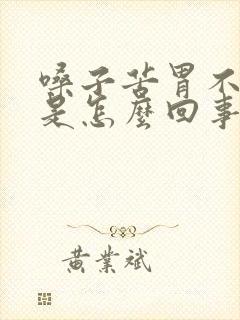 嗓子苦胃不
是怎麼回事
黃業斌